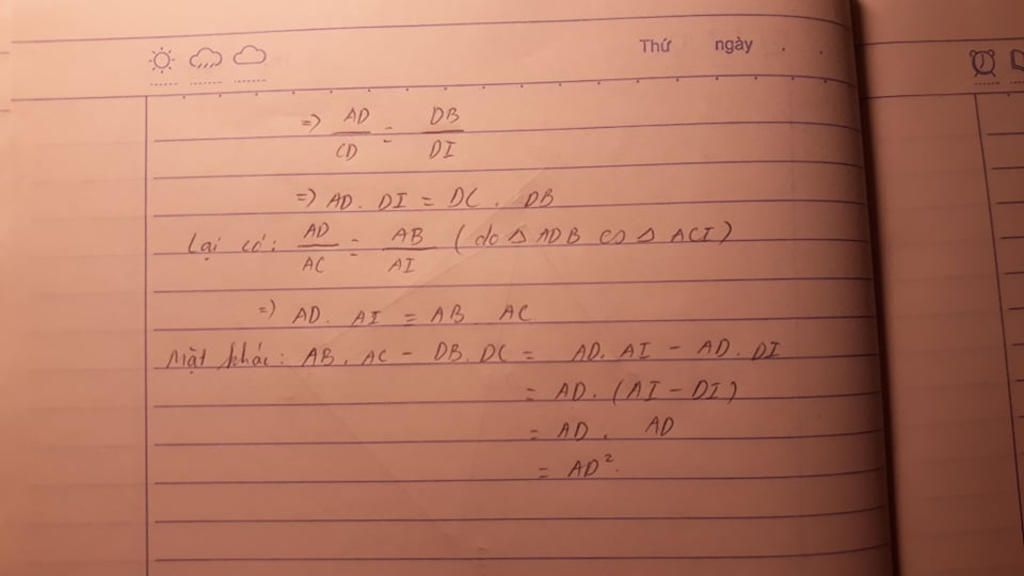 Thứ ngày . .
=> AD/CD = DB/DI
=> AD. DI = DC . DB
Lại có: AD/AC = AB/AI (do Δ ADB ∽ Δ ACI)
=> AD. AI = AB AC
Mặt khác: AB. AC - DB. DC = AD. AI - AD. DI
= AD. (AI - DI)
= AD . AD
= AD².